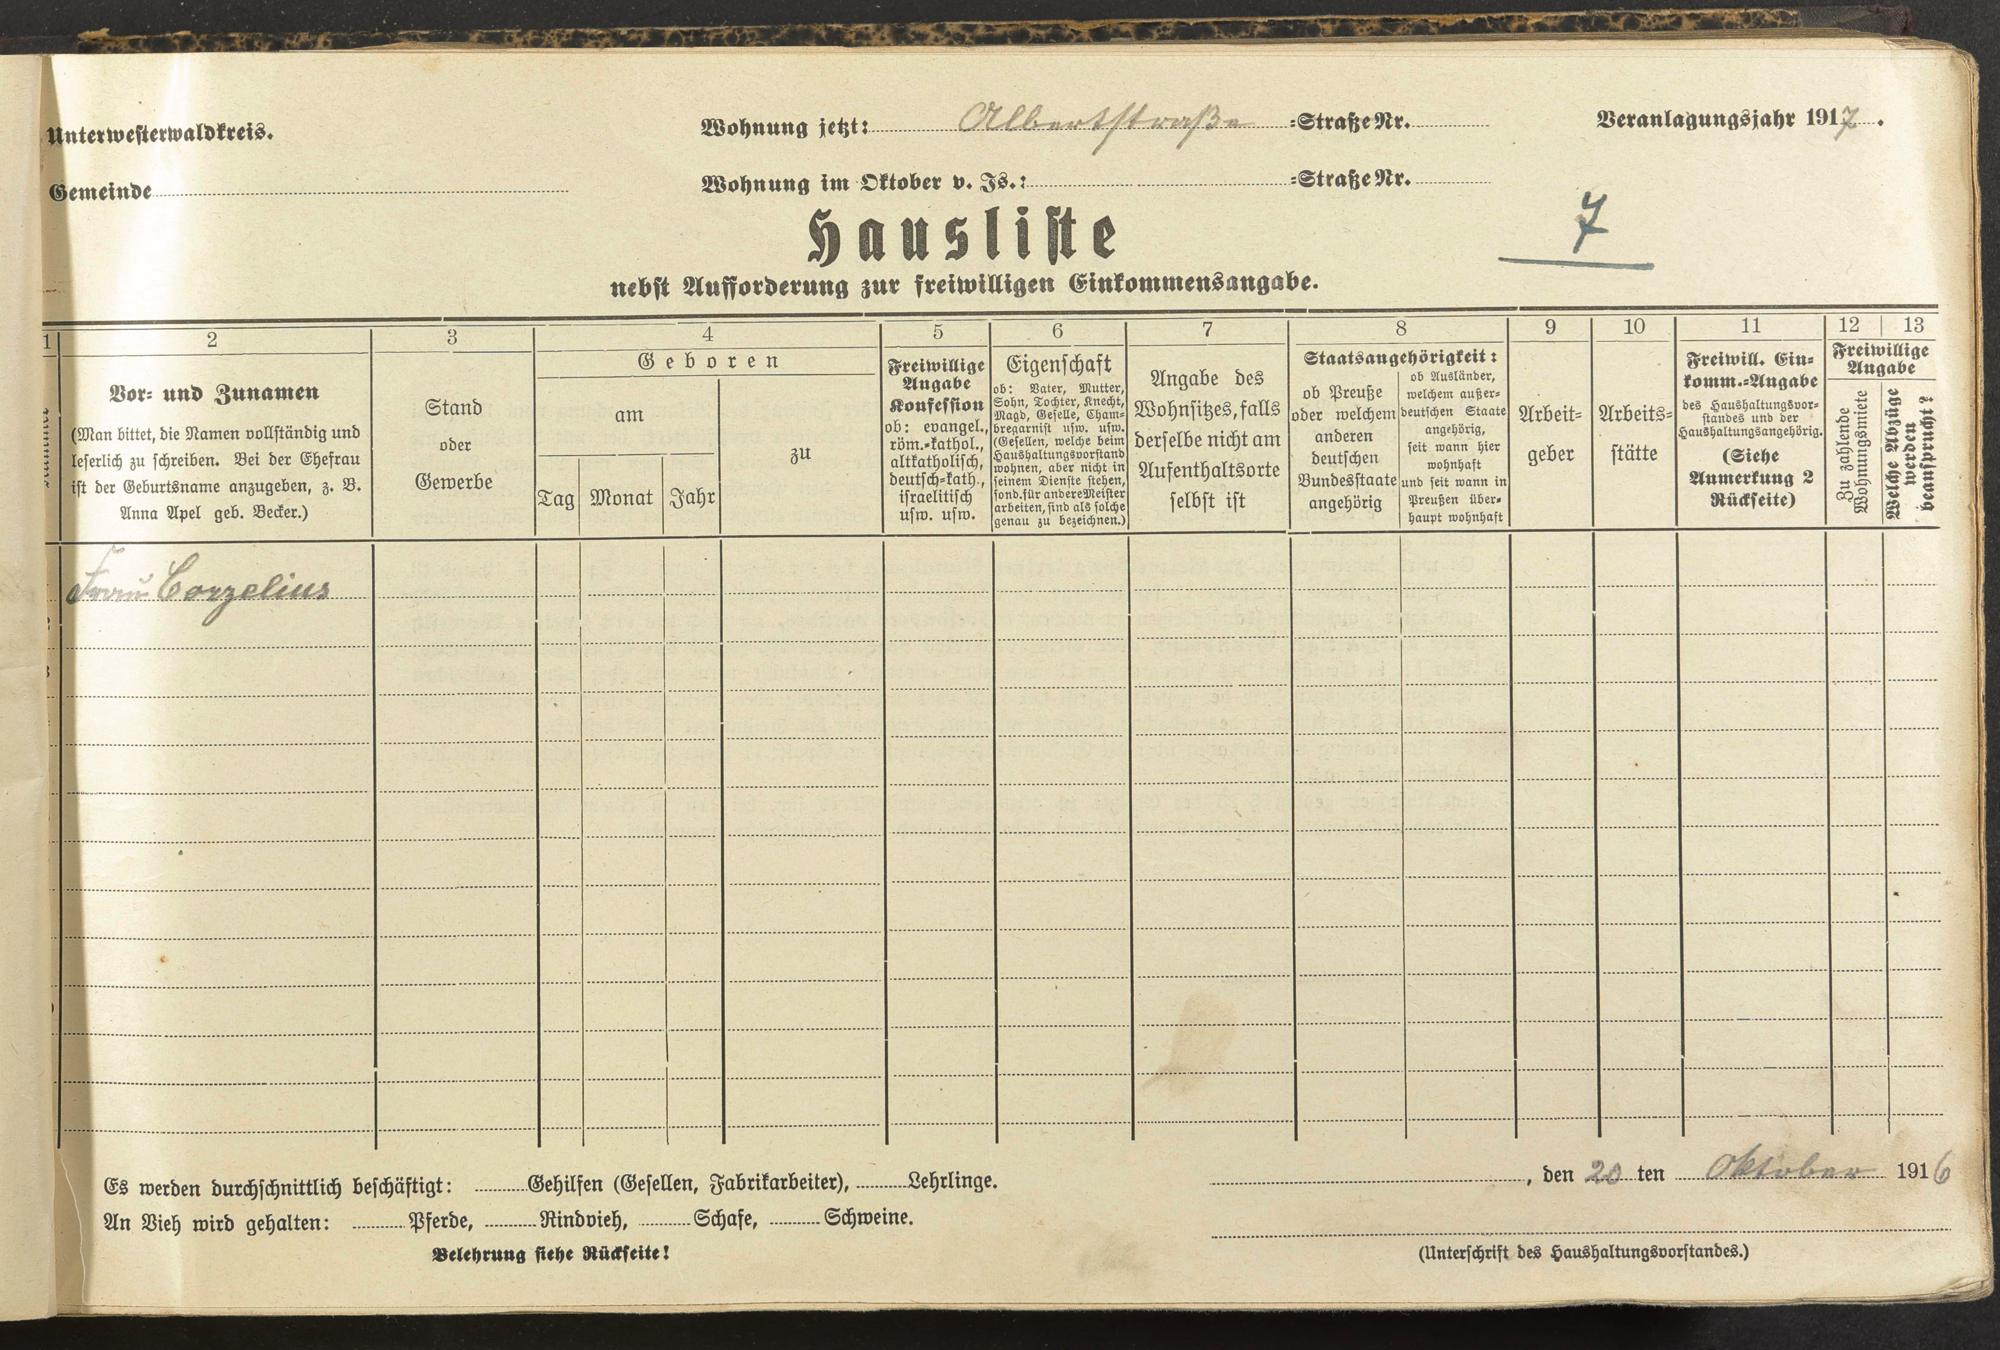 Unterwesterwaldkreis.
Wohnung jetzt: Albertstraße =Straße Nr.
Veranlagungsjahr 1917.
Gemeinde
Wohnung im Oktober v. Js.: =Straße Nr.
7
Hausliste
nebst Aufforderung zur freiwilligen Einkommensangabe.
1 2 3 4 5 6 7 8 9 10 11 12 13
Vor- und Zunamen
(Man bittet, die Namen vollständig und
leserlich zu schreiben. Bei der Ehefrau
ist der Geburtsname anzugeben, z. B.
Anna Apel geb. Becker.)
Stand
oder
Gewerbe
Geboren
am
Tag Monat Jahr
zu
Freiwillige
Angabe
Konfession
ob: evangel.,
röm.-kathol.,
altkatholisch,
deutsch-kath.,
israelitisch
usw. usw.
Eigenschaft
ob: Vater, Mutter,
Sohn, Tochter, Knecht,
Magd, Geselle, Cham-
bregarnist usw. usw.
(Gesellen, welche beim
Haushaltungsvorstand
wohnen, aber nicht in
seinem Dienste stehen,
sond. für andere Meister
arbeiten, sind als solche
genau zu bezeichnen.)
Angabe des
Wohnsitzes, falls
derselbe nicht am
Aufenthaltsorte
selbst ist
Staatsangehörigkeit:
ob Preuße
oder welchem
anderen
deutschen
Bundesstaate
angehörig
ob Ausländer,
welchem außer-
deutschen Staate
angehörig,
seit wann hier
wohnhaft
und seit wann in
Preußen über-
haupt wohnhaft
Arbeit-
geber
Arbeits-
stätte
Freiwill. Ein-
komm.-Angabe
des Haushaltungsvor-
standes und der
Haushaltungsangehörig.
(Siehe
Anmerkung 2
Rückseite)
Freiwillige
Angabe
Zu zahlende
Wohnungsmiete
Welche Abzüge
werden
beansprucht?
Frau Corzelius
Es werden durchschnittlich beschäftigt: Gehilfen (Gesellen, Fabrikarbeiter), Lehrlinge.
, den 20 ten Oktober 1916
An Vieh wird gehalten: Pferde, Rindvieh, Schafe, Schweine.
Belehrung siehe Rückseite!
(Unterschrift des Haushaltungsvorstandes.)